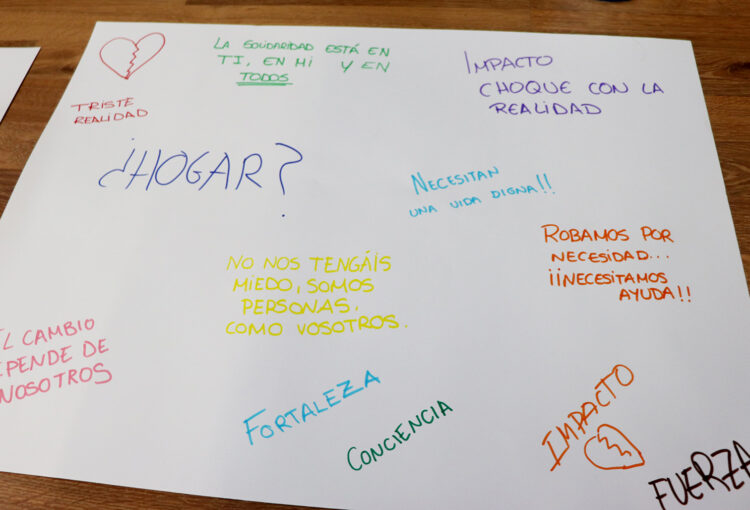 LA SOLIDARIDAD ESTÁ EN
TI, EN MI Y EN
TODOS
IMPACTO
CHOQUE CON LA
REALIDAD
TRISTE
REALIDAD
¿HOGAR?
NECESITAN
UNA VIDA DIGNA!!
ROBAMOS POR
NECESIDAD...
¡¡NECESITAMOS
AYUDA!!
NO NOS TENGÁIS
MIEDO, SOMOS
PERSONAS,
COMO VOSOTROS.
EL CAMBIO
DEPENDE DE
NOSOTROS
FORTALEZA
CONCIENCIA
IMPACTO
FUERZA